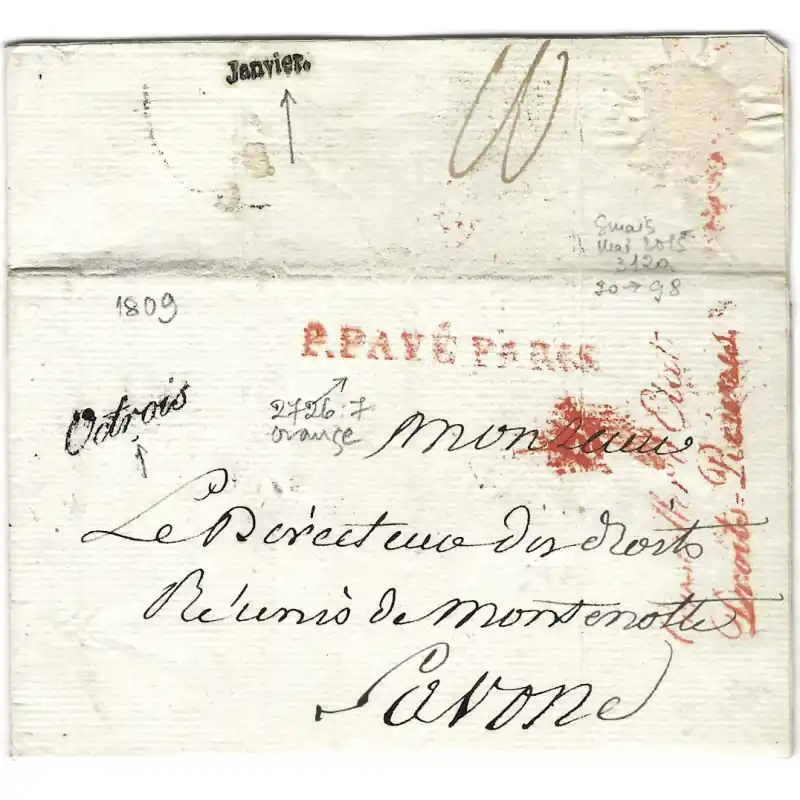 Janvier.
mai 2015
3120
30 → 98
1809
P.PAYÉ PARIS
Octrois
2726:7
orange
Monsieur
Le Directeur des droits
Réunis de Montenotte
Savone
Droits-Réunis